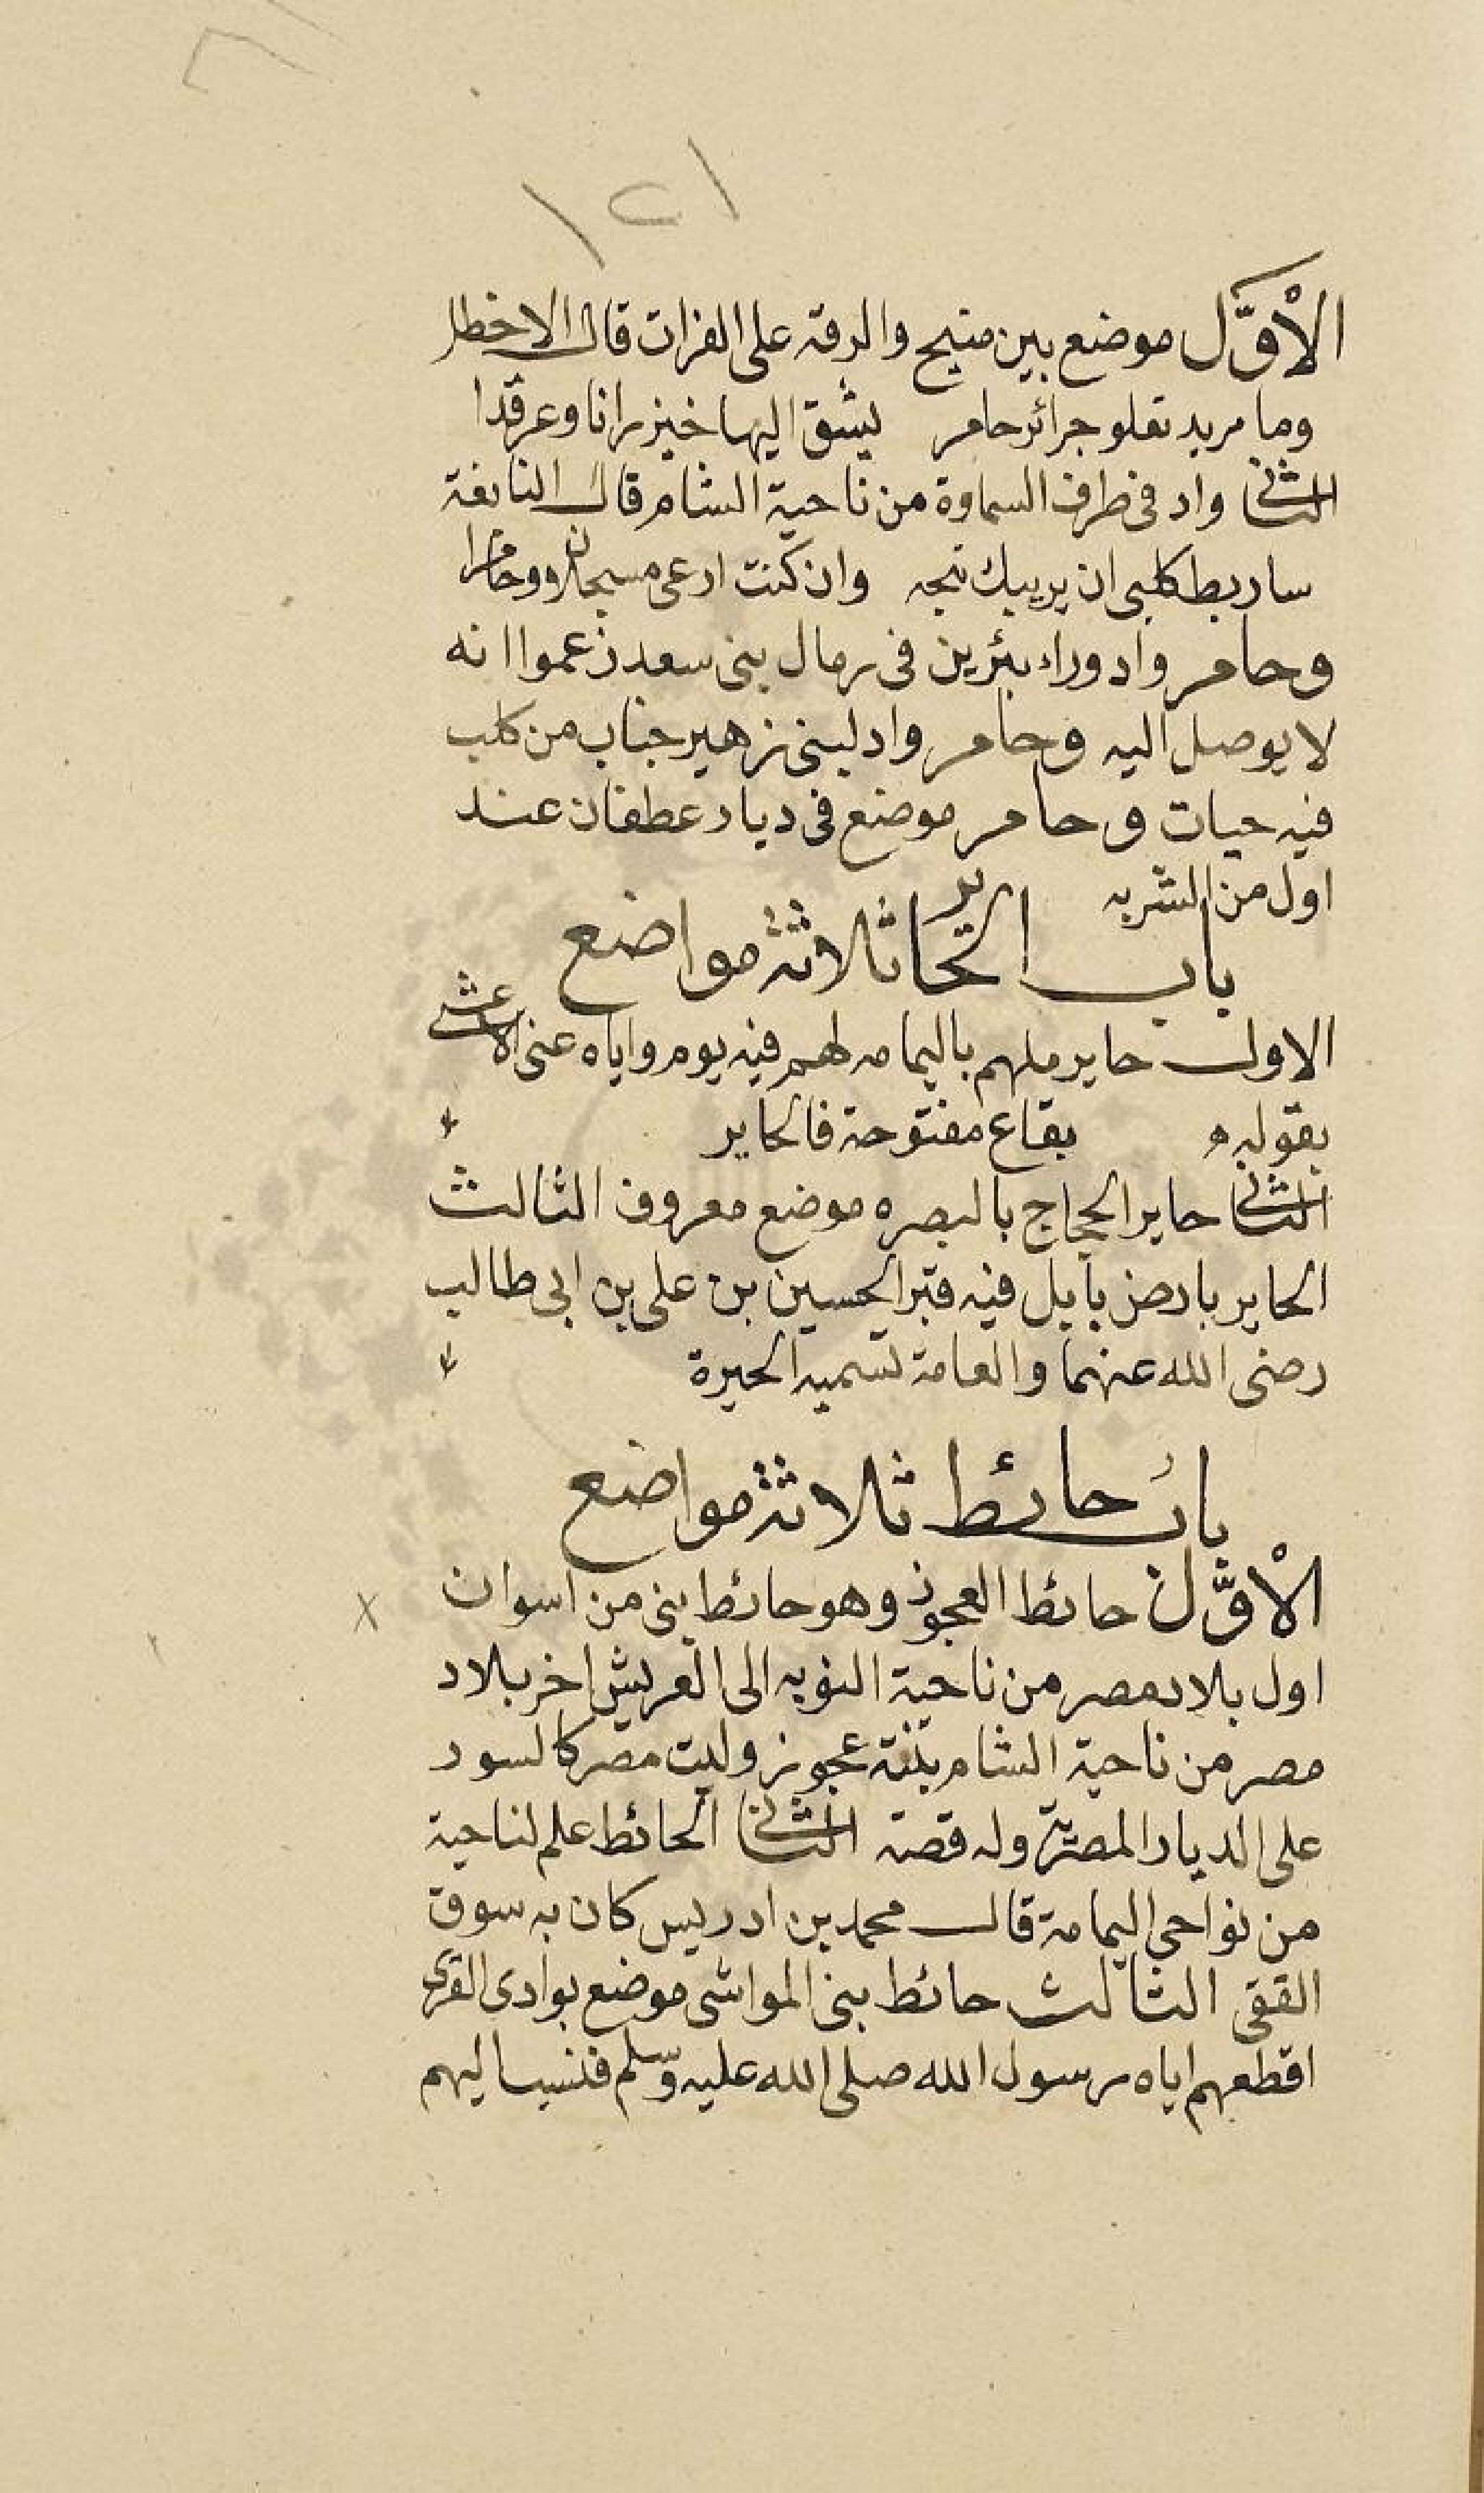 ١٢١
الْأوَّل موضع بين منبج والرقة على الفرات قال الاخطل
وما مربد تعلو جرائر حامر يشق اليها خيزرانا وعرقدا
الثانى واد فى طرف السماوة من ناحية الشام قال النابغة
ساربط كلبى ان يريبك نبحه وان كنت ارعى مسحلان وحامرا
وحامر واد وراء يبرين فى رمال بنى سعد زعموا انه
لا يوصل اليه وحامر واد لبنى زهير جناب من كلب
فيه حيات وحامر موضع فى ديار عطفان عند
اول من الشربه
باب الحاير ثلاثة مواضع
الاول حاير ملهم باليمامه لهم فيه يوم واياه عنى الاعشى
بقوله بقاع مفتوحة فالحاير
الثانى حاير الحجاج بالبصره موضع معروف الثالث
الحاير بارض بابل فيه قبر الحسين بن على بن ابى طالب
رضى الله عنهما والعامة تسميه الحيرة
باب حائط ثلاثة مواضع
الْأوَّل حائط العجوز وهو حائط بنى من اسوان
اول بلاد مصر من ناحية النوبه الى العريش اخر بلاد
مصر من ناحية الشام بنته عجوز وليت مصر كالسور
على الديار المصرية وله قصة الثانى الحائط علم لناحية
من نواحي اليمامة قال محمد بن ادريس كان به سوق
الققى الثالث حائط بنى المواشى موضع بوادى القرى
اقطعهم اياه رسول الله صلى الله عليه وسلم فنسب اليهم